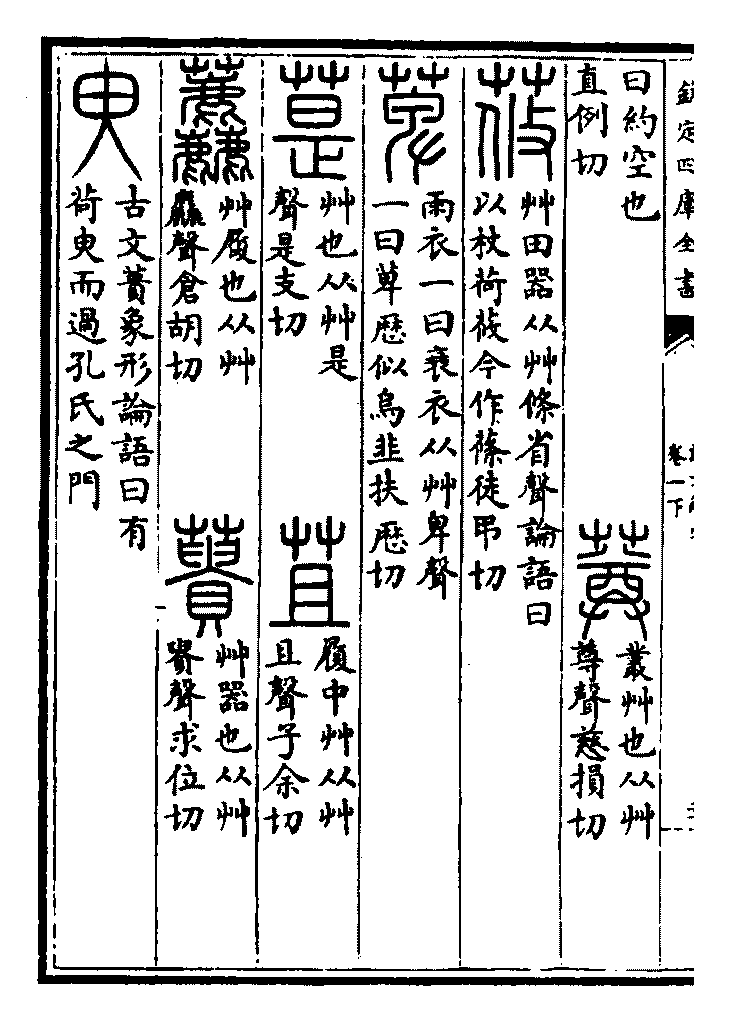 欽定四庫全書
卷一下
曰約空也
直例切
䔿
叢艸也从艸
尊聲慈損切
莜
艸田器从艸條省聲論語曰
以杖荷莜今作蓧徒弔切
萆
雨衣一曰衰衣从艸卑聲
一曰萆厯似烏韭扶厯切
䓳
艸也从艸是
聲是支切
苴
履中艸从艸
且聲子余切
𧆓
艸履也从艸
麤聲倉胡切
蕢
艸器也从艸
貴聲求位切
臾
古文蕢象形論語曰有
荷臾而過孔氏之門